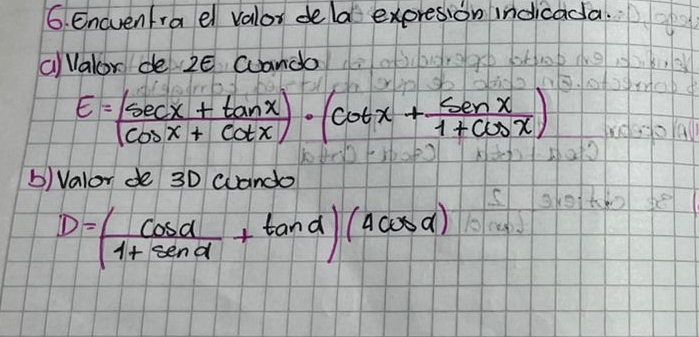 6. Encuentra el valor de la expresión indicada.
a) Valor de 2E cuando
E = (secx + tanx / cosx + cotx) · (cotx + senx / 1 + cosx)
b) Valor de 3D cuando
D = (cosα / 1 + senα + tanα)(4cosα)